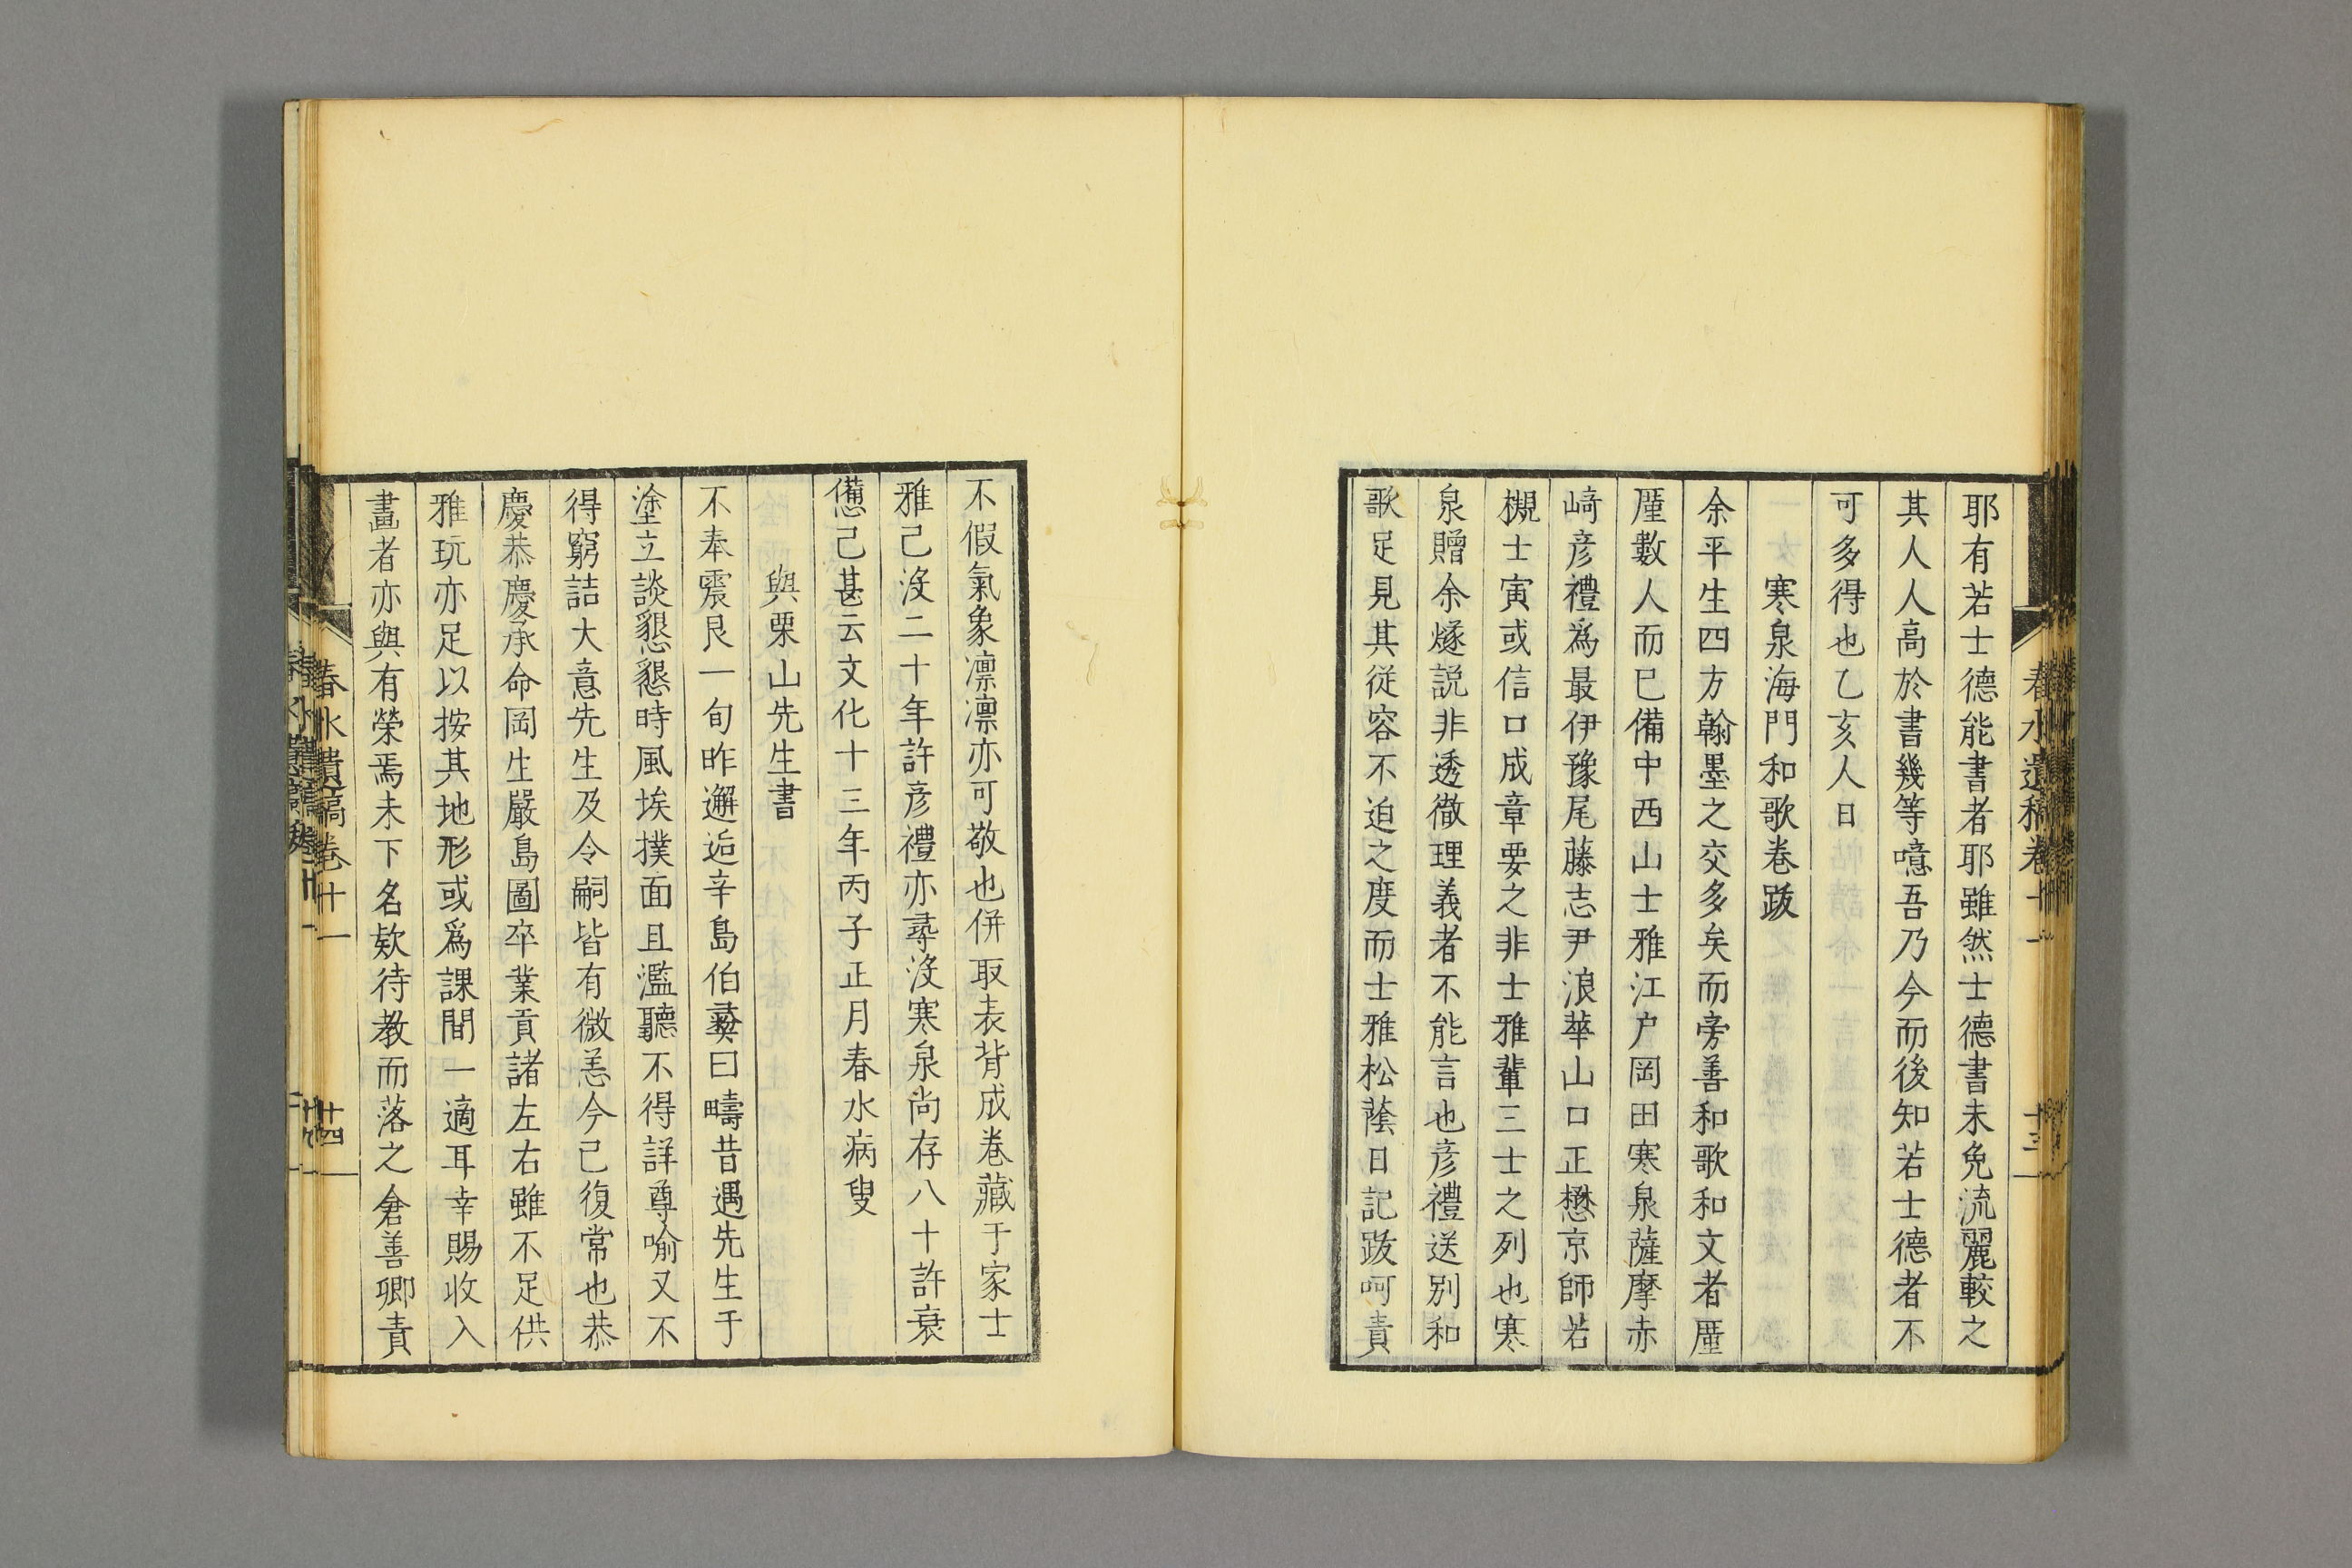 春水遺稿卷十一
十三
耶有若士德能書者耶雖然士德書未免流麗較之
其人人高於書幾等噫吾乃今而後知若士德者不
可多得也乙亥人日
寒泉海門和歌卷跋
余平生四方翰墨之交多矣而旁善和歌和文者厪
厪數人而已備中西山士雅江户岡田寒泉薩摩赤
﨑彦禮爲最伊豫尾藤志尹浪華山口正懋京師若
槻士寅或信口成章要之非士雅輩三士之列也寒
泉贈余燧説非透徹理義者不能言也彦禮送别和
歌足見其従容不迫之度而士雅松蔭日記跋呵責
不假氣象凛凛亦可敬也併取表背成卷藏于家士
雅己沒二十年許彦禮亦尋沒寒泉尚存八十許衰
憊己甚云文化十三年丙子正月春水病叟
與栗山先生書
不奉震艮一旬昨邂逅辛島伯彜曰疇昔遇先生于
塗立談懇懇時風埃撲面且濫聽不得詳尊喻又不
得窮詰大意先生及令嗣皆有微恙今己復常也恭
慶恭慶承命岡生嚴島圖卒業貢諸左右雖不足供
雅玩亦足以按其地形或爲課間一適耳幸賜收入
畵者亦與有榮焉未下名欵待教而落之倉善卿責
春水遺稿卷十一
十四